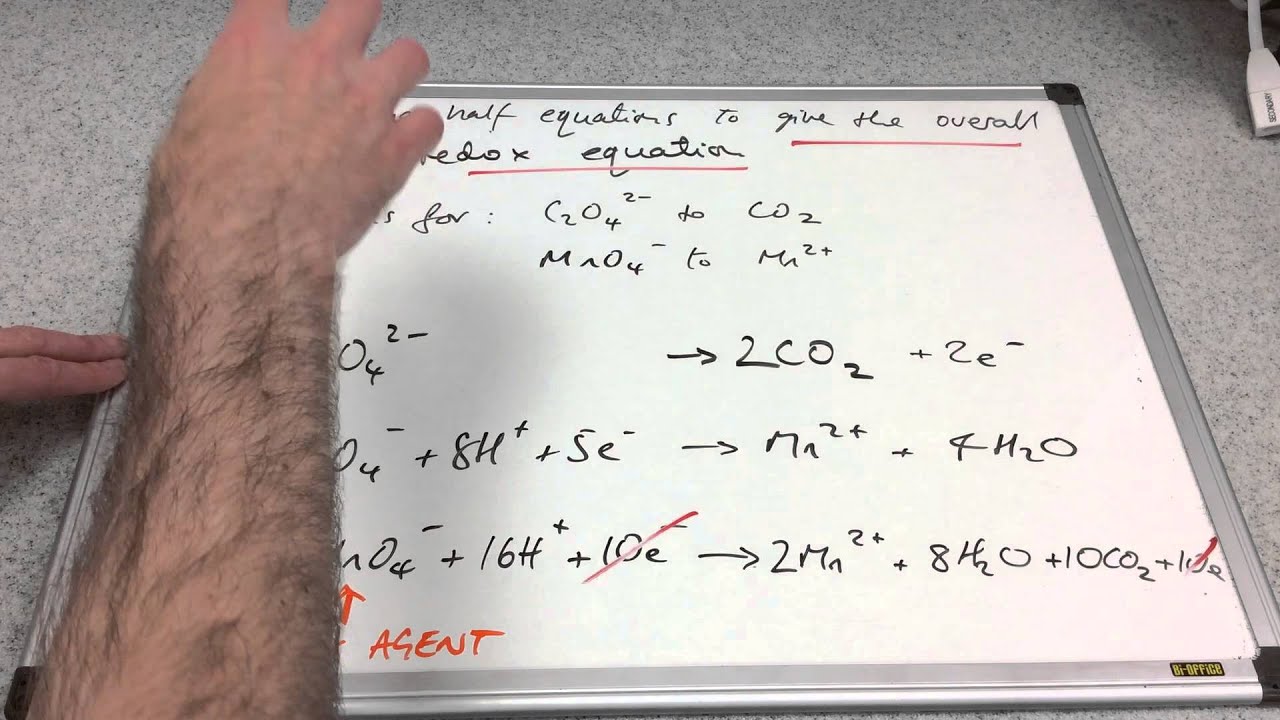 half equations to give the overall
redox equation
for : C₂O₄²⁻ to CO₂
MnO₄⁻ to Mn²⁺
O₄²⁻ → 2CO₂ + 2e⁻
O₄⁻ + 8H⁺ + 5e⁻ → Mn²⁺ + 4H₂O
nO₄⁻ + 16H⁺ + 10e⁻ → 2Mn²⁺ + 8H₂O + 10CO₂ + 10e
AGENT
Bi-OFFICE
SECONDARY